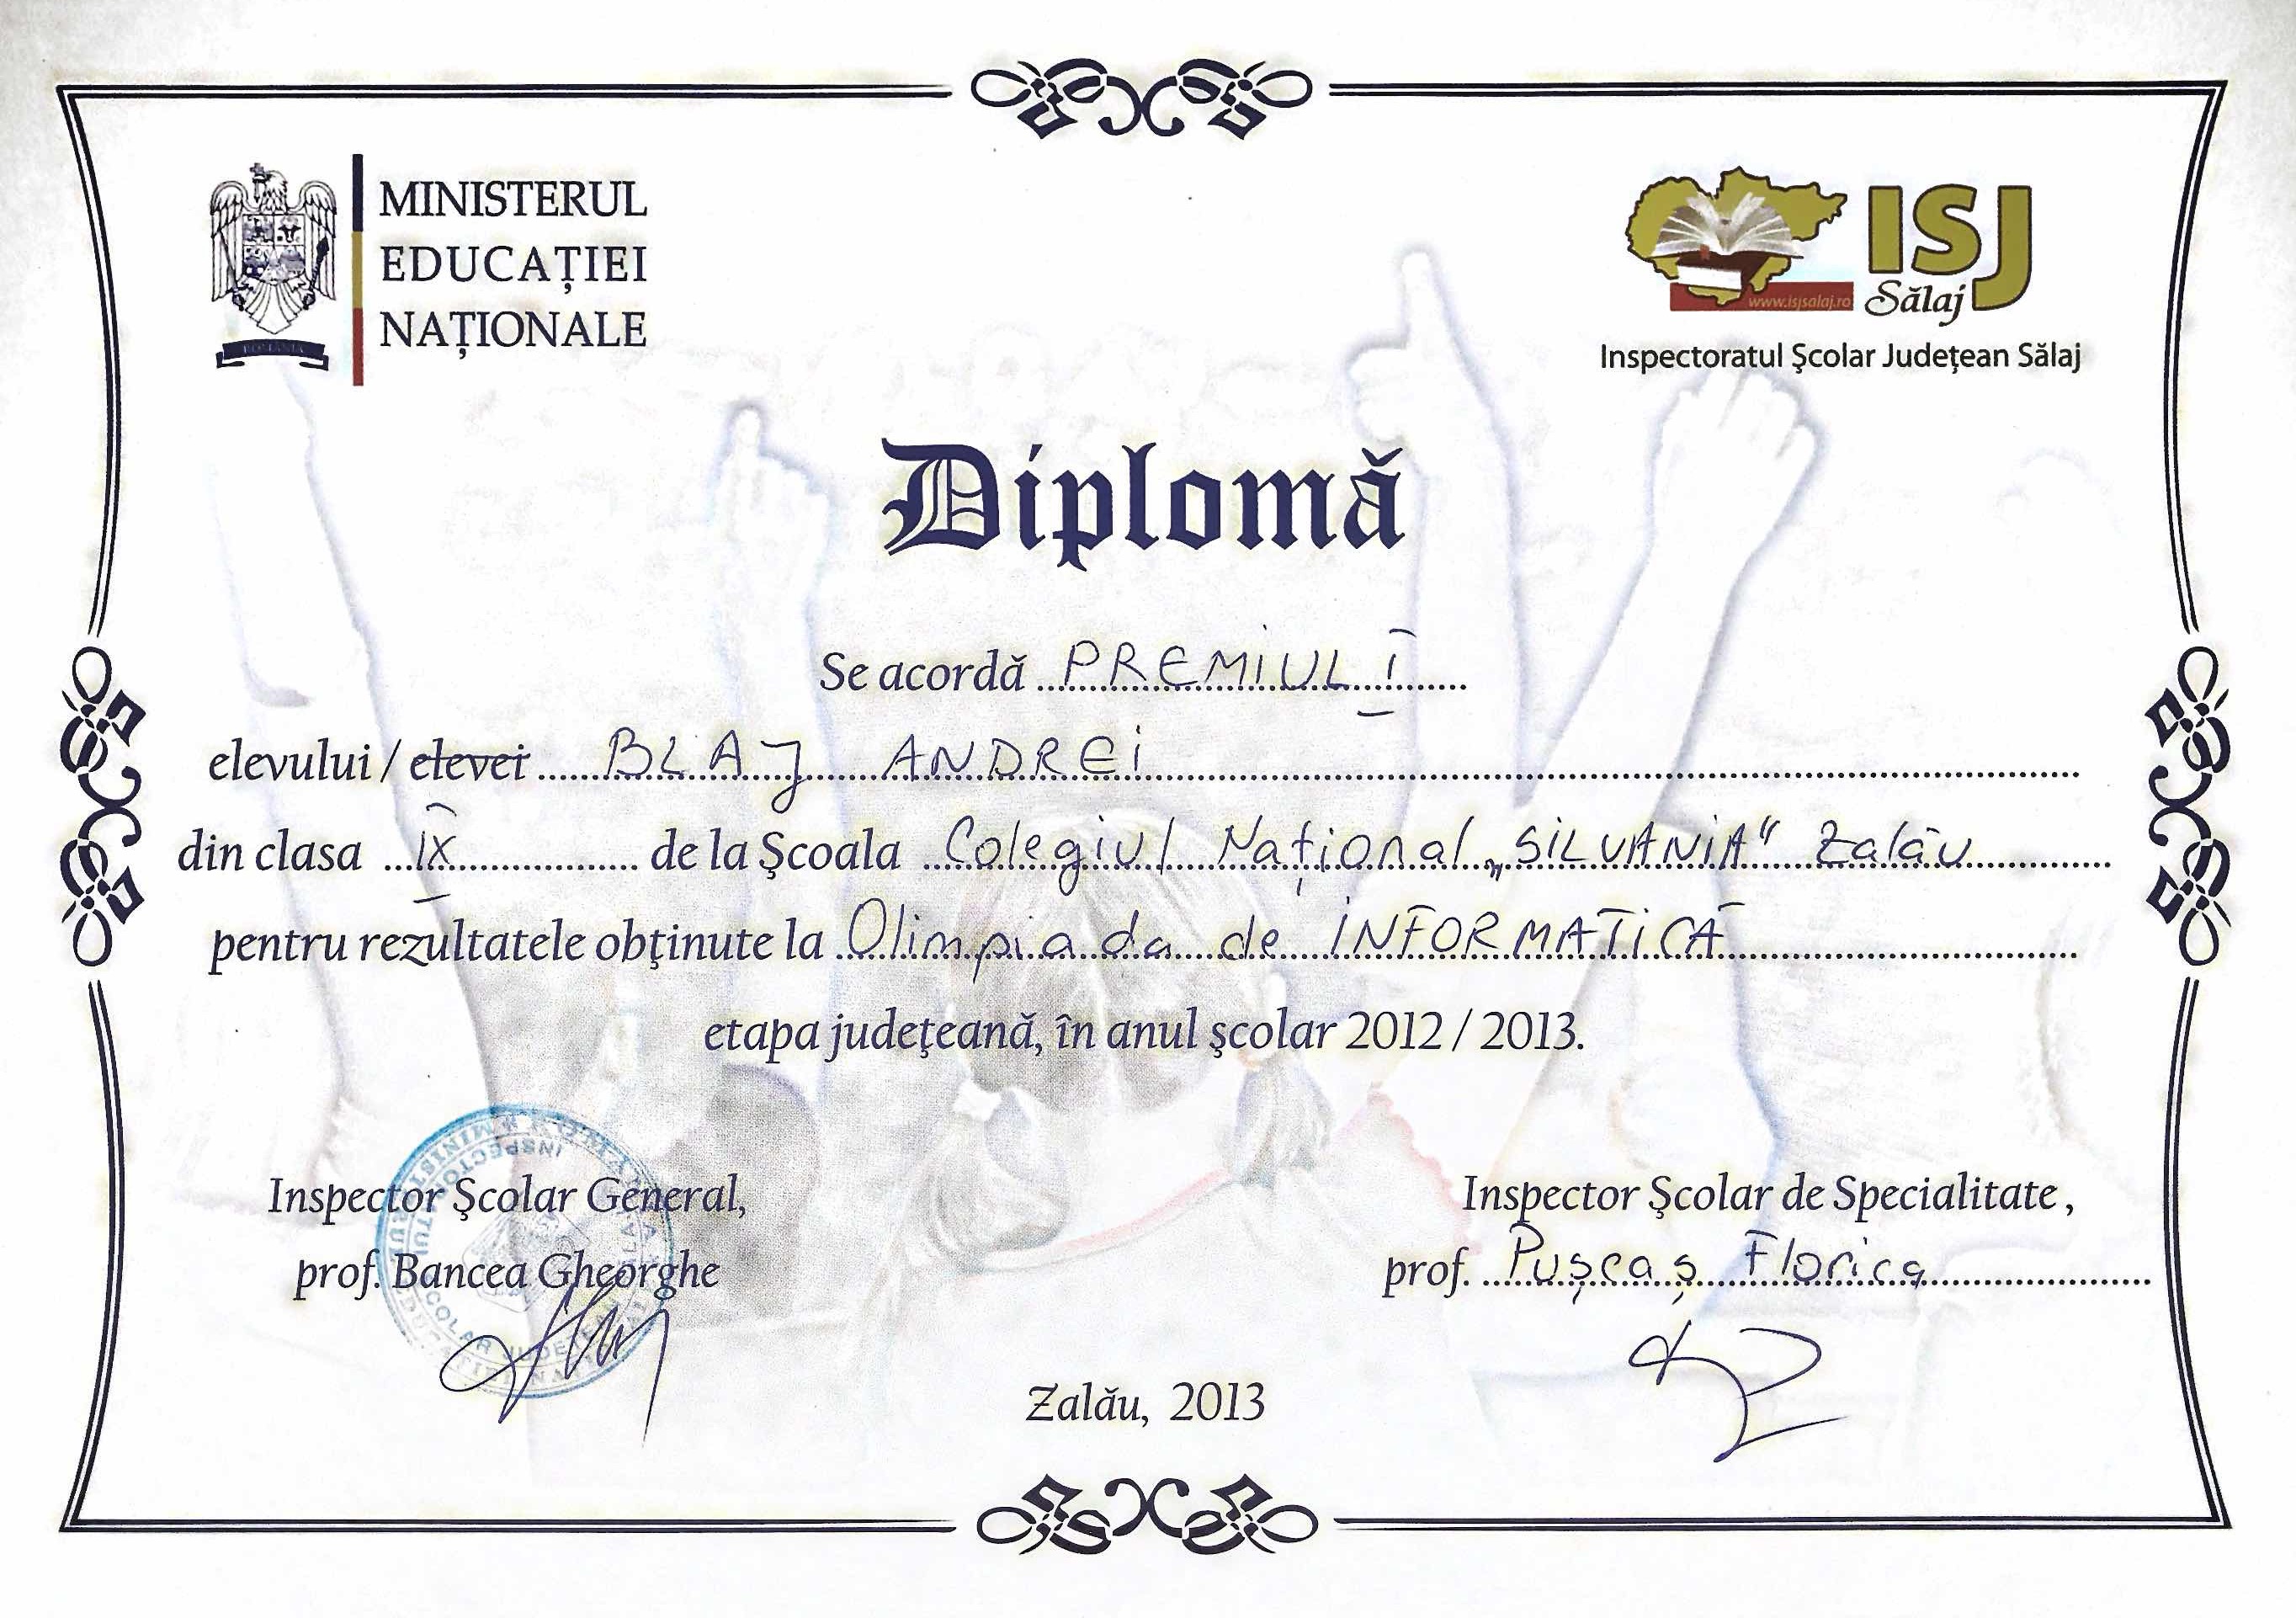 MINISTERUL
EDUCAȚIEI
NAȚIONALE
ROMANIA
ISJ
Sălaj
www.isjsalaj.ro
Inspectoratul Şcolar Judeţean Sălaj
Diplomă
Se acordă PREMIUL I
elevului / elevei BLAJ ANDREI
din clasa IX de la Şcoala Colegiul Național „SILVANIA" Zalău
pentru rezultatele obţinute la Olimpiada de INFORMATICĂ
etapa judeţeană, în anul şcolar 2012 / 2013.
Inspector Şcolar General,
prof. Bancea Gheorghe
Inspector Şcolar de Specialitate,
prof. Pușcaș Florica
Zalău, 2013